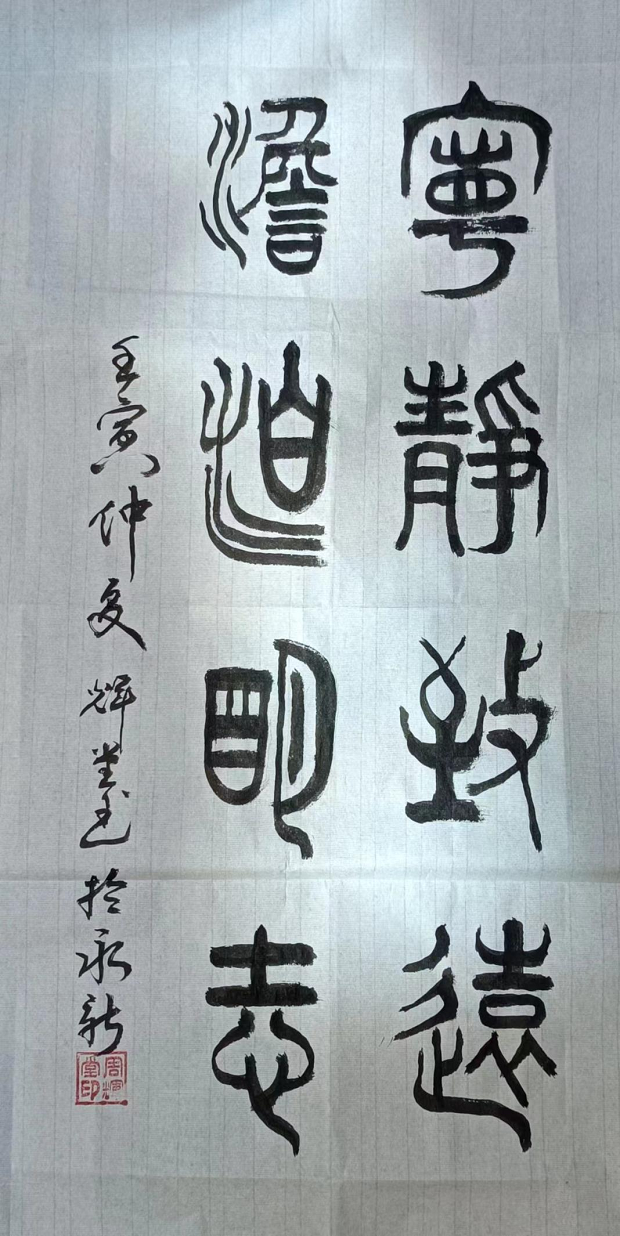 寧靜致遠
澹泊明志
壬寅仲夏輝堂書於永新
周輝
堂印